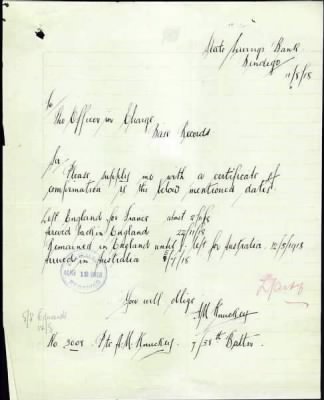 State Savings Bank
Bendigo
11/8/18
To
The Officer in Charge
Base Records
Sir
Please supply me with a certificate of
confirmation re the below mentioned dates.
Left England for France about
arrived back in England 22/11/18
Remained in England until I left for Australia. 12/5/1918
Arrived in Australia 8/7/18
AUG 12 1918
You will oblige
A M Knuckey
No 3009 Pte A. M. Knuckey. 7/38th Battn.